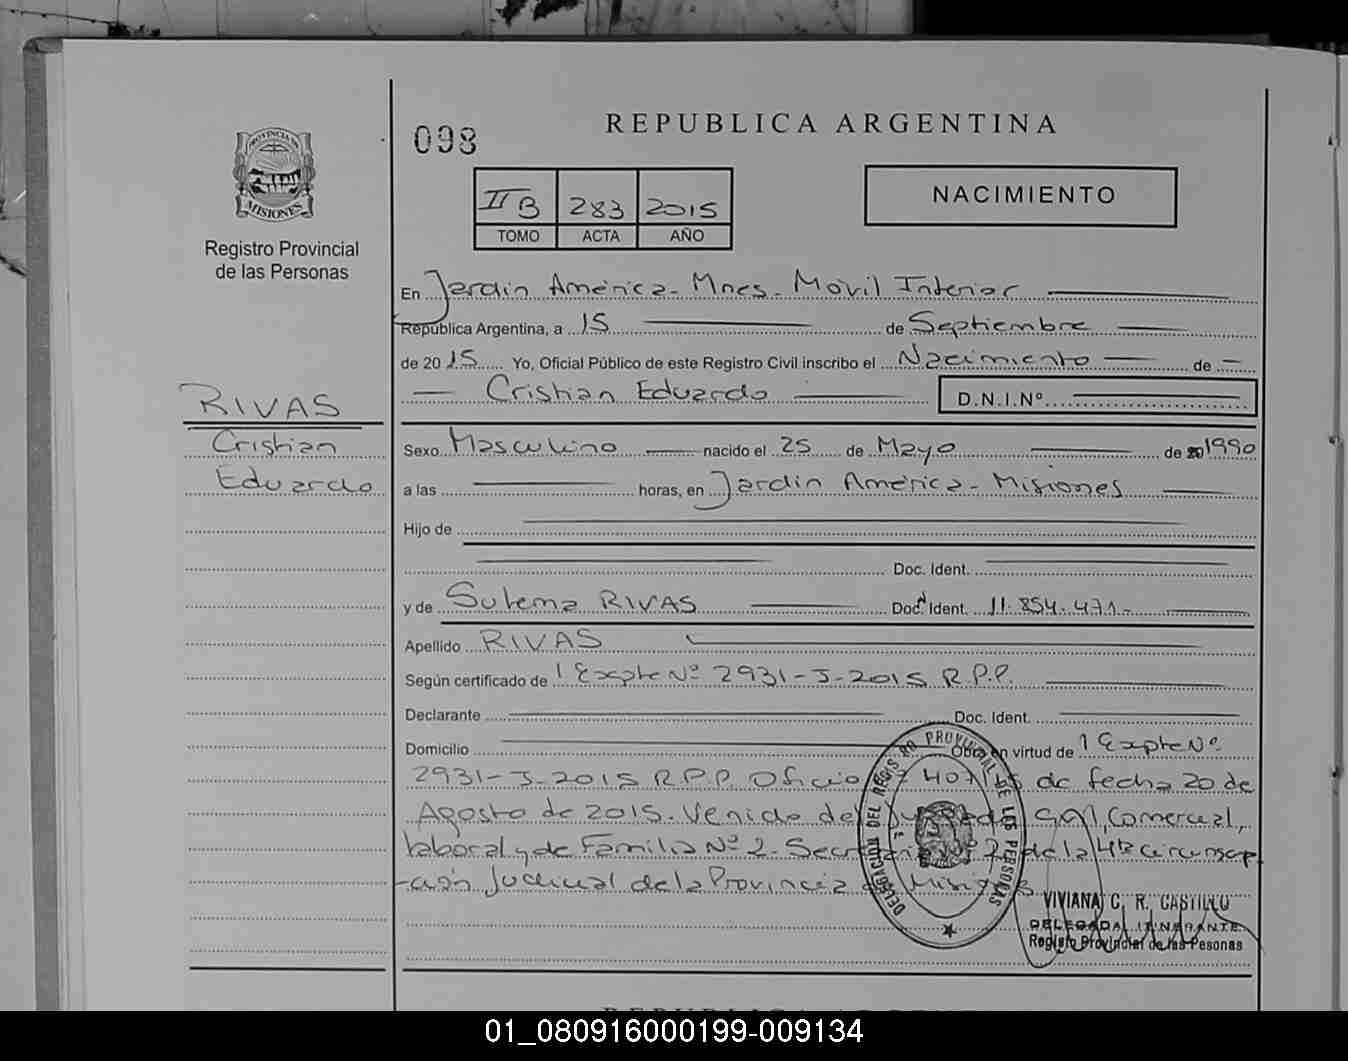 098
REPUBLICA ARGENTINA
PROVINCIA DE
MISIONES
Registro Provincial
de las Personas
II B 283 2015
TOMO ACTA AÑO
NACIMIENTO
En Jardin América - Mnes. Móvil Interior
República Argentina, a 15 de Septiembre
de 2015 Yo, Oficial Público de este Registro Civil inscribo el Nacimiento de
Cristian Eduardo D.N.I.Nº
RIVAS
Cristian
Eduardo
Sexo Masculino nacido el 25 de Mayo de 20 1990
a las horas, en Jardin América - Misiones
Hijo de
Doc. Ident.
y de Sulema RIVAS Doc. Ident. 11.854.471-
Apellido RIVAS
Según certificado de 1 Expte Nº 2931-J-2015 R.P.P.
Declarante Doc. Ident.
Domicilio Obro en virtud de 1 Expte Nº
2931-J-2015 R.P.P. Oficio de fecha 20 de
Agosto de 2015. Venido del Juzgado Civil, Comercial,
laboral y de Familia Nº 2 - Secretaria Nº 2 de la 4ta circunscrip
-ción Judicial de la Provincia de Misiones
DELEGACIÓN DEL REGISTRO PROVINCIAL DE LAS PERSONAS
VIVIANA C. R. CASTILLO
DELEGADA ITINERANTE
Registo Provincial de las Pesonas
01_080916000199-009134